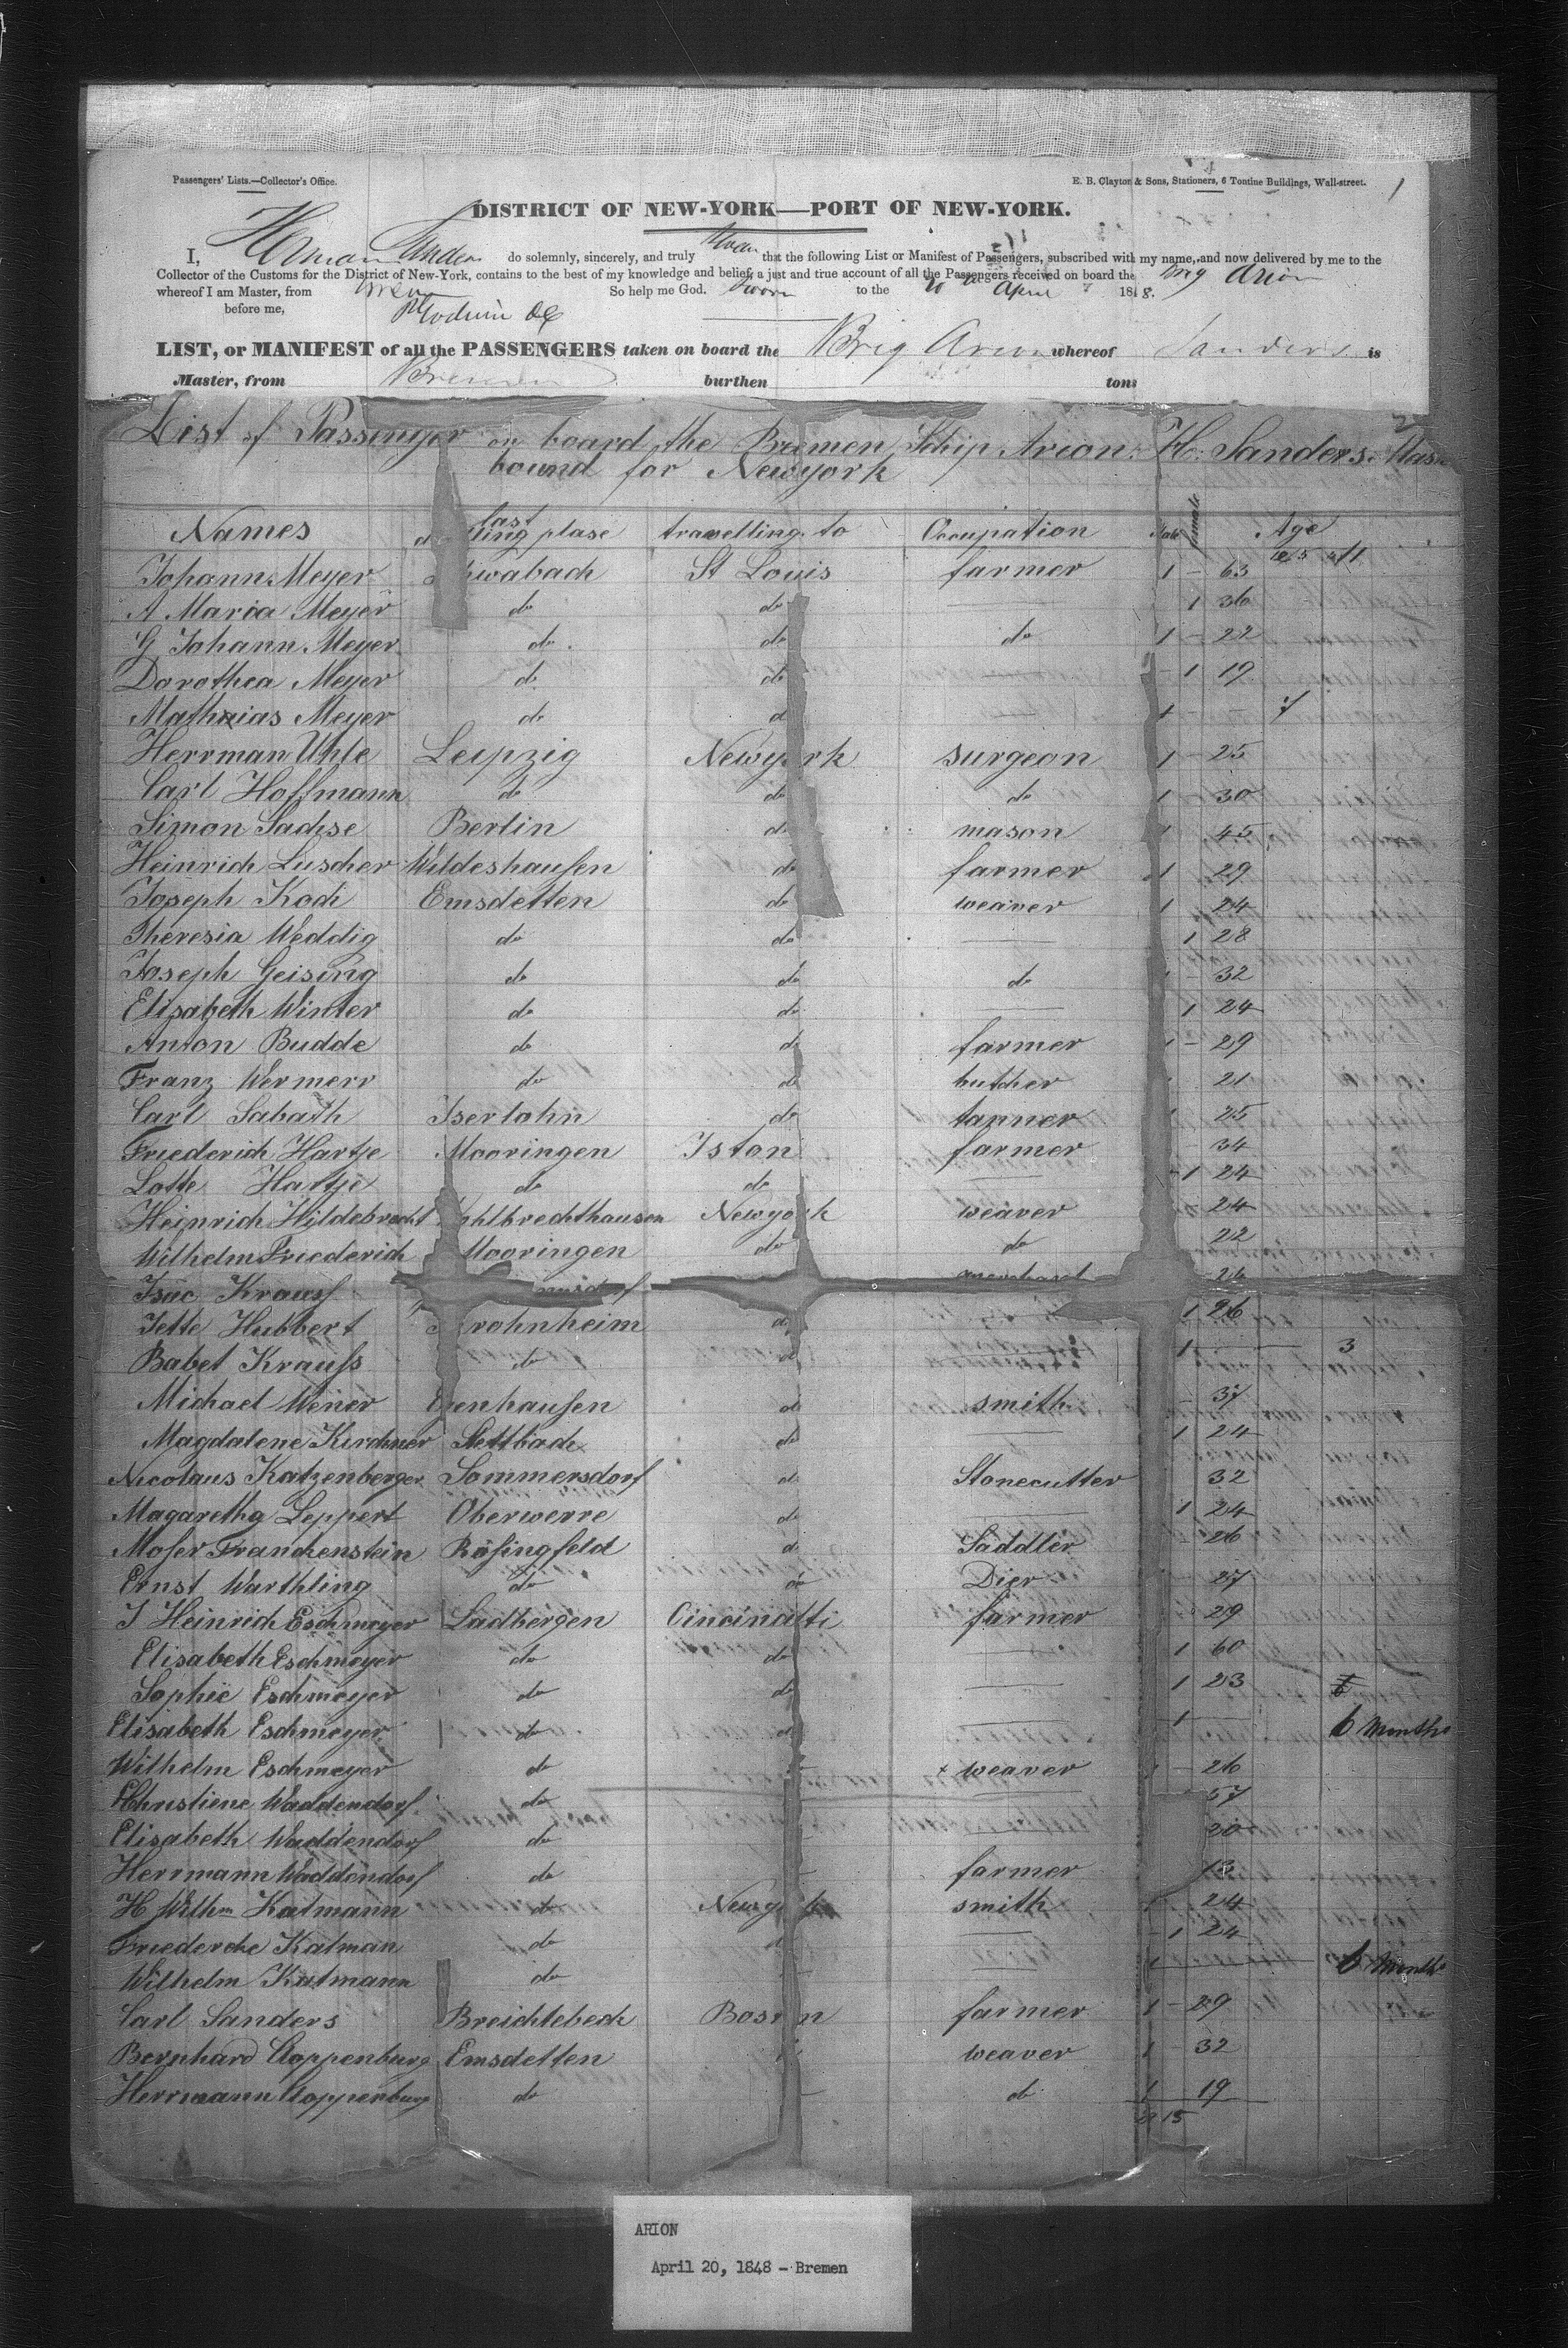 Passengers' Lists.—Collector's Office.
E. B. Clayton & Sons, Stationers, 6 Tontine Buildings, Wall-street.
1
DISTRICT OF NEW-YORK—PORT OF NEW-YORK.
I, do solemnly, sincerely, and truly that the following List or Manifest of Passengers, subscribed with my name, and now delivered by me to the
Collector of the Customs for the District of New-York, contains to the best of my knowledge and belief, a just and true account of all the Passengers received on board the Brig Arion
whereof I am Master, from Bremen So help me God. Sworn to the 20 April 1848.
before me,
LIST, or MANIFEST of all the PASSENGERS taken on board the Brig Arion whereof Sanders is
Master, from Bremen burthen tons
List of Passenger on board the Bremen Schip Arion. H. Sanders. Mas
bound for Newyork
Names last plase travelling to Occupation Male female Age
Johann Meyer St Louis farmer 1 – 63
A Maria Meyer do do — 1 36
G Johann Meyer do do do 1 – 22
Dorothea Meyer do do — – 1 19
Mathias Meyer do d — 1 – – 7
Herrman Uhle Leipzig Newyork surgeon 1 – 25
Carl Hoffmann do do do 1 – 30
Simon Sachse Berlin do mason 1 45
Heinrich Luscher Wildeshausen do farmer 1 29
Joseph Kodi Emsdetten do weaver 1 24
Theresia Weddig do do — 1 28
Joseph Geising do do do – 32
Elisabeth Winter do do — 1 24
Anton Budde do do farmer 1 – 29
Franz Wermerr do do butcher 21
Carl Sabath Iserlohn do tanner 25
Friederich Hartje Mooringen Iston farmer – 34
Lotte Hartje do do — – 1 24
Heinrich Hildebrecht hlbrechthausen Newyork weaver – 24
Wilhelm Friederich Mooringen do do 22
Isac Krauss merchant
Jette Hubbert rohnheim d 1 26
Babet Krauss do d 1 — 3
Michael Wener Euenhausen do smith – 37
Magdalene Kirchner Stettbach do — 1 24
Nicolaus Katzenberger Sommersdorf d Stonecutter 32
Magaretha Leppert Oberwerre do — 1 24
Moser Franckenstein Rösingfeld d Saddler – 26
Ernst Warthling do do Dier – 27
J Heinrich Eschmeyer Ladbergen Cincinatti farmer 29
Elisabeth Eschmeyer do do — 1 60
Sophie Eschmeyer do do — 1 23
Elisabeth Eschmeyer do d — 1 6 Months
Wilhelm Eschmeyer do weaver – 26
Christiene Waddendorf do 57
Elisabeth Waddendorf do — 30
Herrmann Waddendorf do farmer 13
H Wilhm Katmann do Newyork smith – 24
Friederche Katman do — – 1 24
Wilhelm Katmann do — 1 6 Months
Carl Sanders Breichtebeck Boston farmer 1 – 29
Bernhard Cloppenburg Emsdetten weaver 1 32
Herrmann Cloppenburg do do 1 19
15
ARION
April 20, 1848 - Bremen